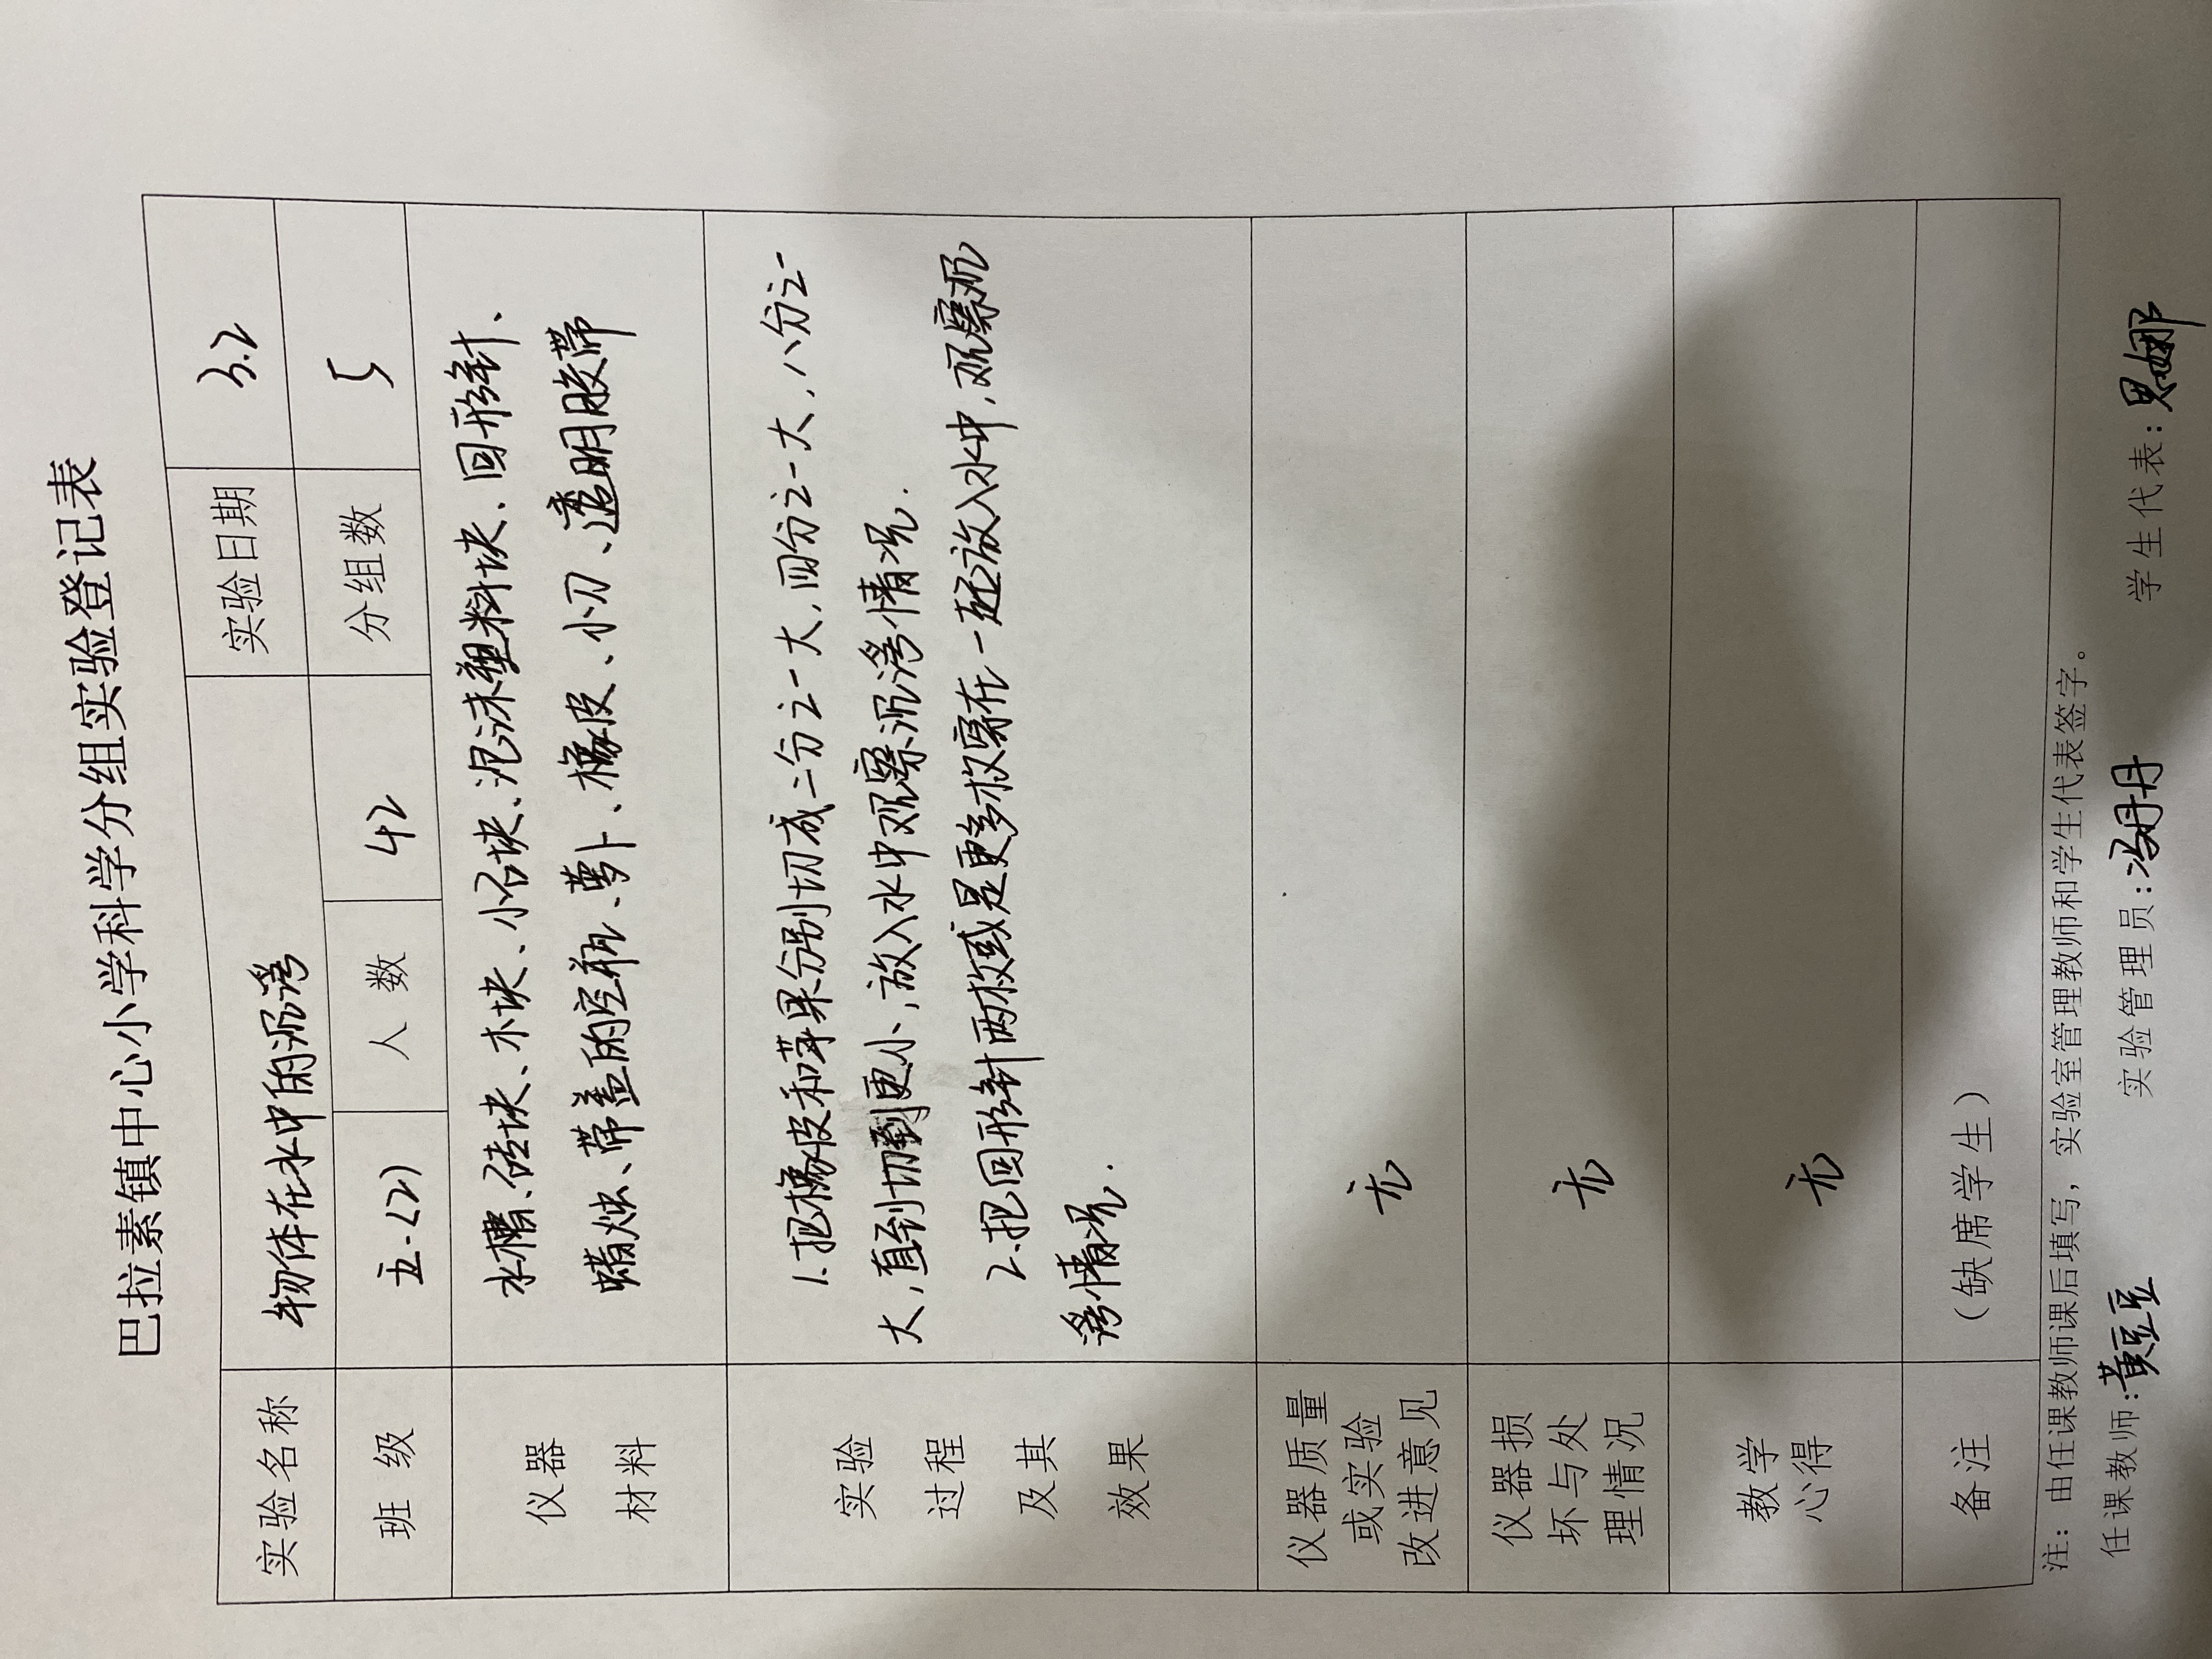 巴拉素镇中心小学科学分组实验登记表
实验名称 物体在水中的沉浮 实验日期 3.2
班级 五.(2) 人数 42 分组数 5
仪器
材料
水槽、砖块、木块、小石块、泡沫塑料块、回形针、
蜡烛、带盖的空瓶、萝卜、橡皮、小刀、透明胶带
实验
过程
及其
效果
1.把橡皮和苹果分别切成二分之一大,四分之一大,八分之一
大,直到切到更小,放入水中观察沉浮情况.
2.把回形针两枚或是更多枚穿在一起放入水中,观察沉
浮情况.
仪器质量
或实验
改进意见
无
仪器损
坏与处
理情况
无
教学
心得
无
备注 (缺席学生)
注:由任课教师课后填写,实验室管理教师和学生代表签字。
任课教师:黄豆豆 实验管理员:冯丹丹 学生代表:思娜